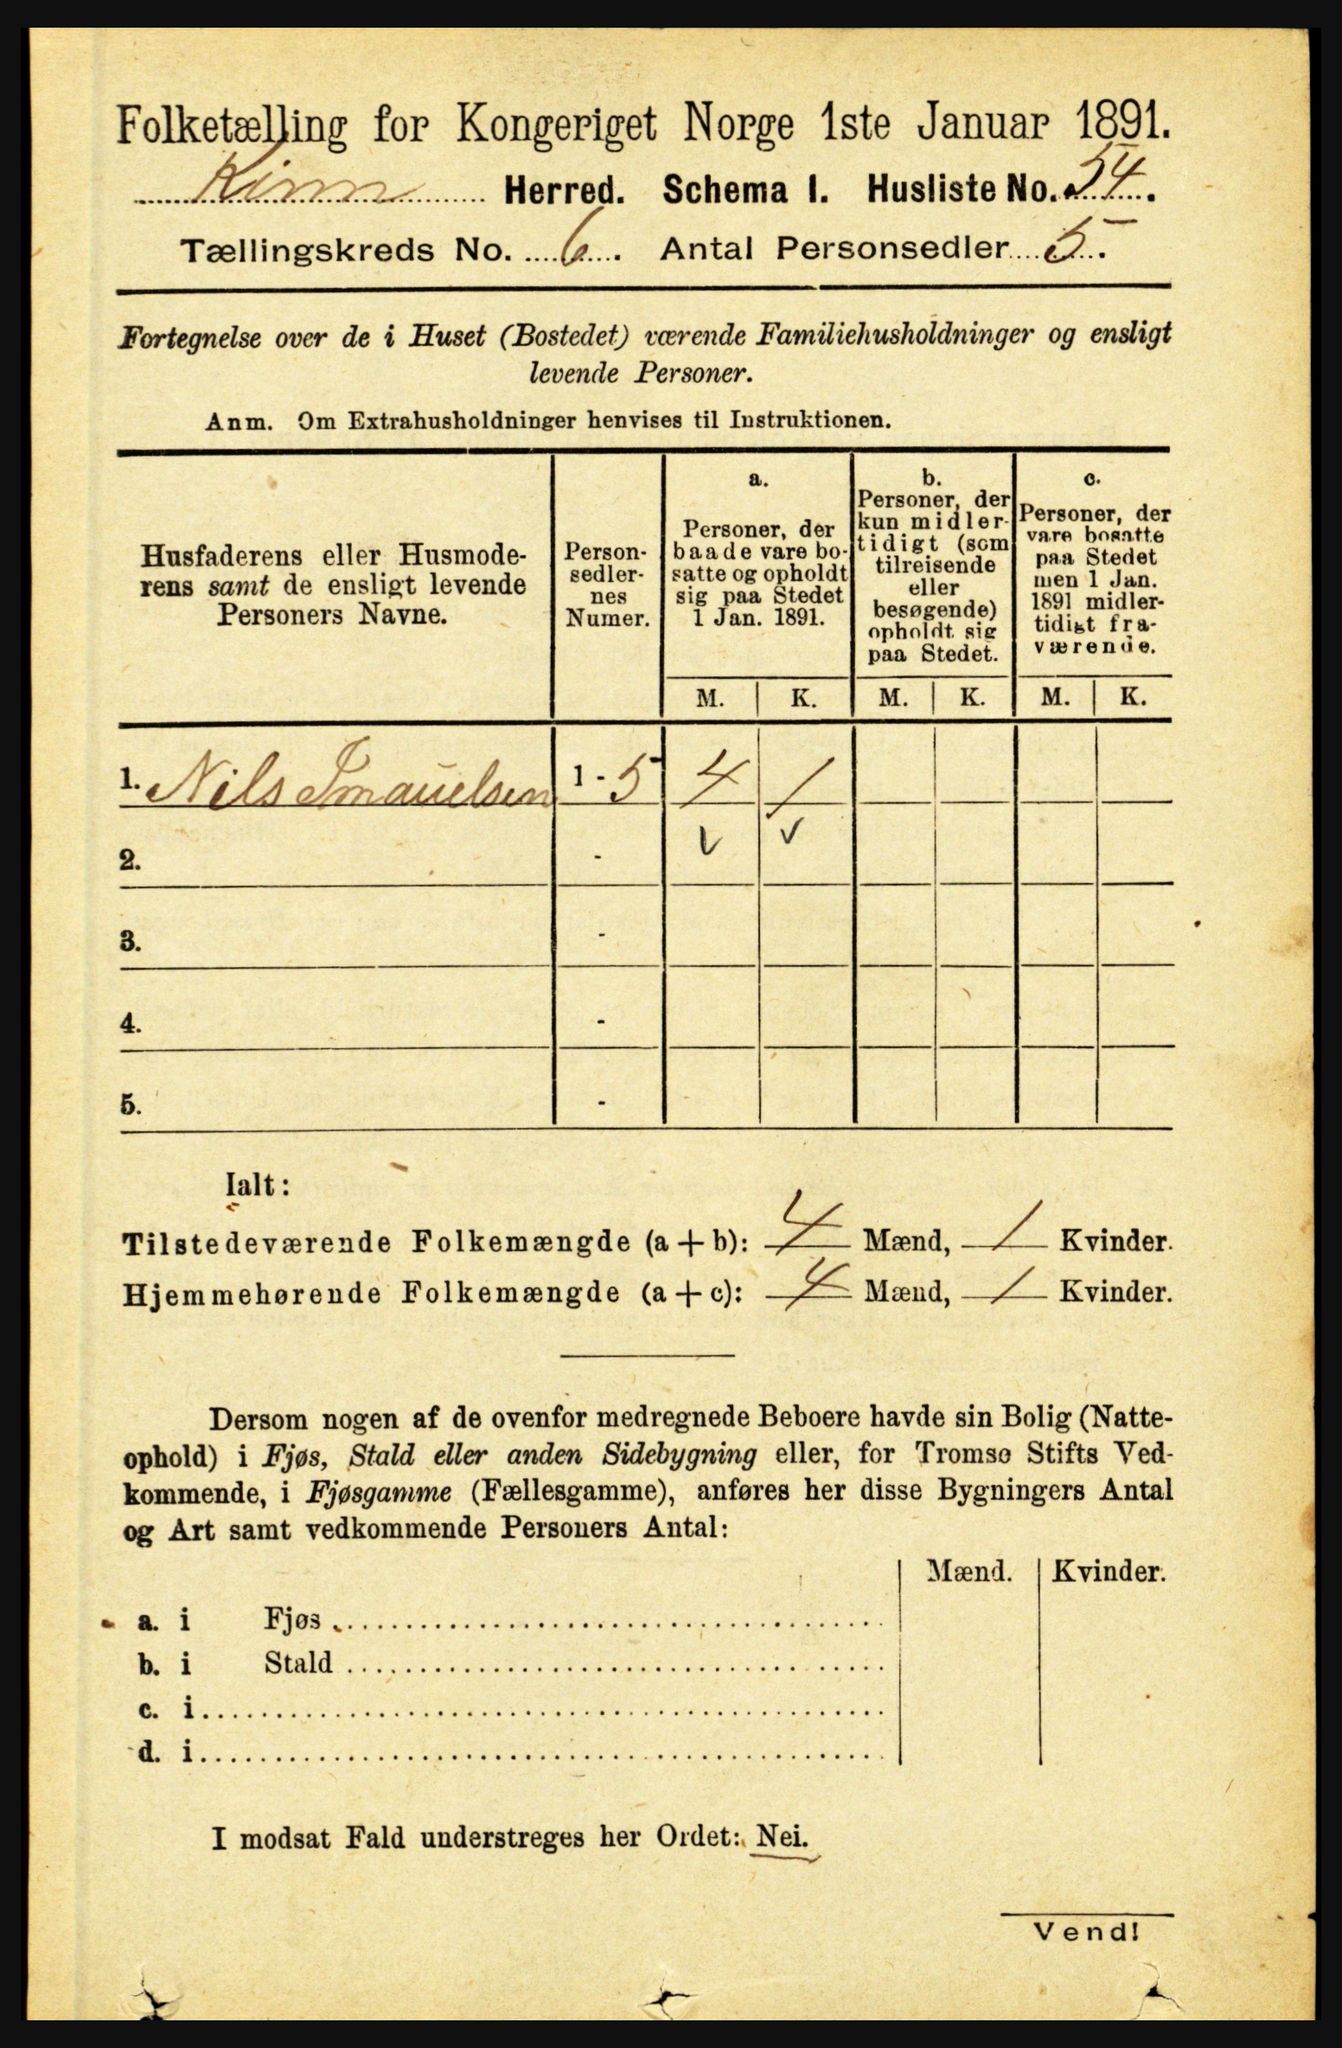 Folketælling for Kongeriget Norge 1ste Januar 1891.
Kinn Herred. Schema I. Husliste No. 54.
Tællingskreds No. 6. Antal Personsedler 5.
Fortegnelse over de i Huset (Bostedet) værende Familiehusholdninger og ensligt
levende Personer.
Anm. Om Extrahusholdninger henvises til Instruktionen.
Husfaderens eller Husmode-
rens samt de ensligt levende
Personers Navne.
Person-
sedler-
nes
Numer.
a.
Personer, der
baade vare bo-
satte og opholdt
sig paa Stedet
1 Jan. 1891.
b.
Personer, der
kun midler-
tidigt (som
tilreisende
eller
besøgende)
opholdt sig
paa Stedet.
c.
Personer, der
vare bosatte
paa Stedet
men 1 Jan.
1891 midler-
tidigt fra-
værende.
M. K. M. K. M. K.
1. Nils Imauelsen 1 - 5 4 1
2. - ✓ ✓
3. -
4. -
5. -
Ialt:
Tilstedeværende Folkemængde (a + b): 4 Mænd, 1 Kvinder.
Hjemmehørende Folkemængde (a + c): 4 Mænd, 1 Kvinder.
Dersom nogen af de ovenfor medregnede Beboere havde sin Bolig (Natte-
ophold) i Fjøs, Stald eller anden Sidebygning eller, for Tromsø Stifts Ved-
kommende, i Fjøsgamme (Fællesgamme), anføres her disse Bygningers Antal
og Art samt vedkommende Personers Antal:
Mænd. Kvinder.
a. i Fjøs
b. i Stald
c. i
d. i
I modsat Fald understreges her Ordet: Nei.
Vend!